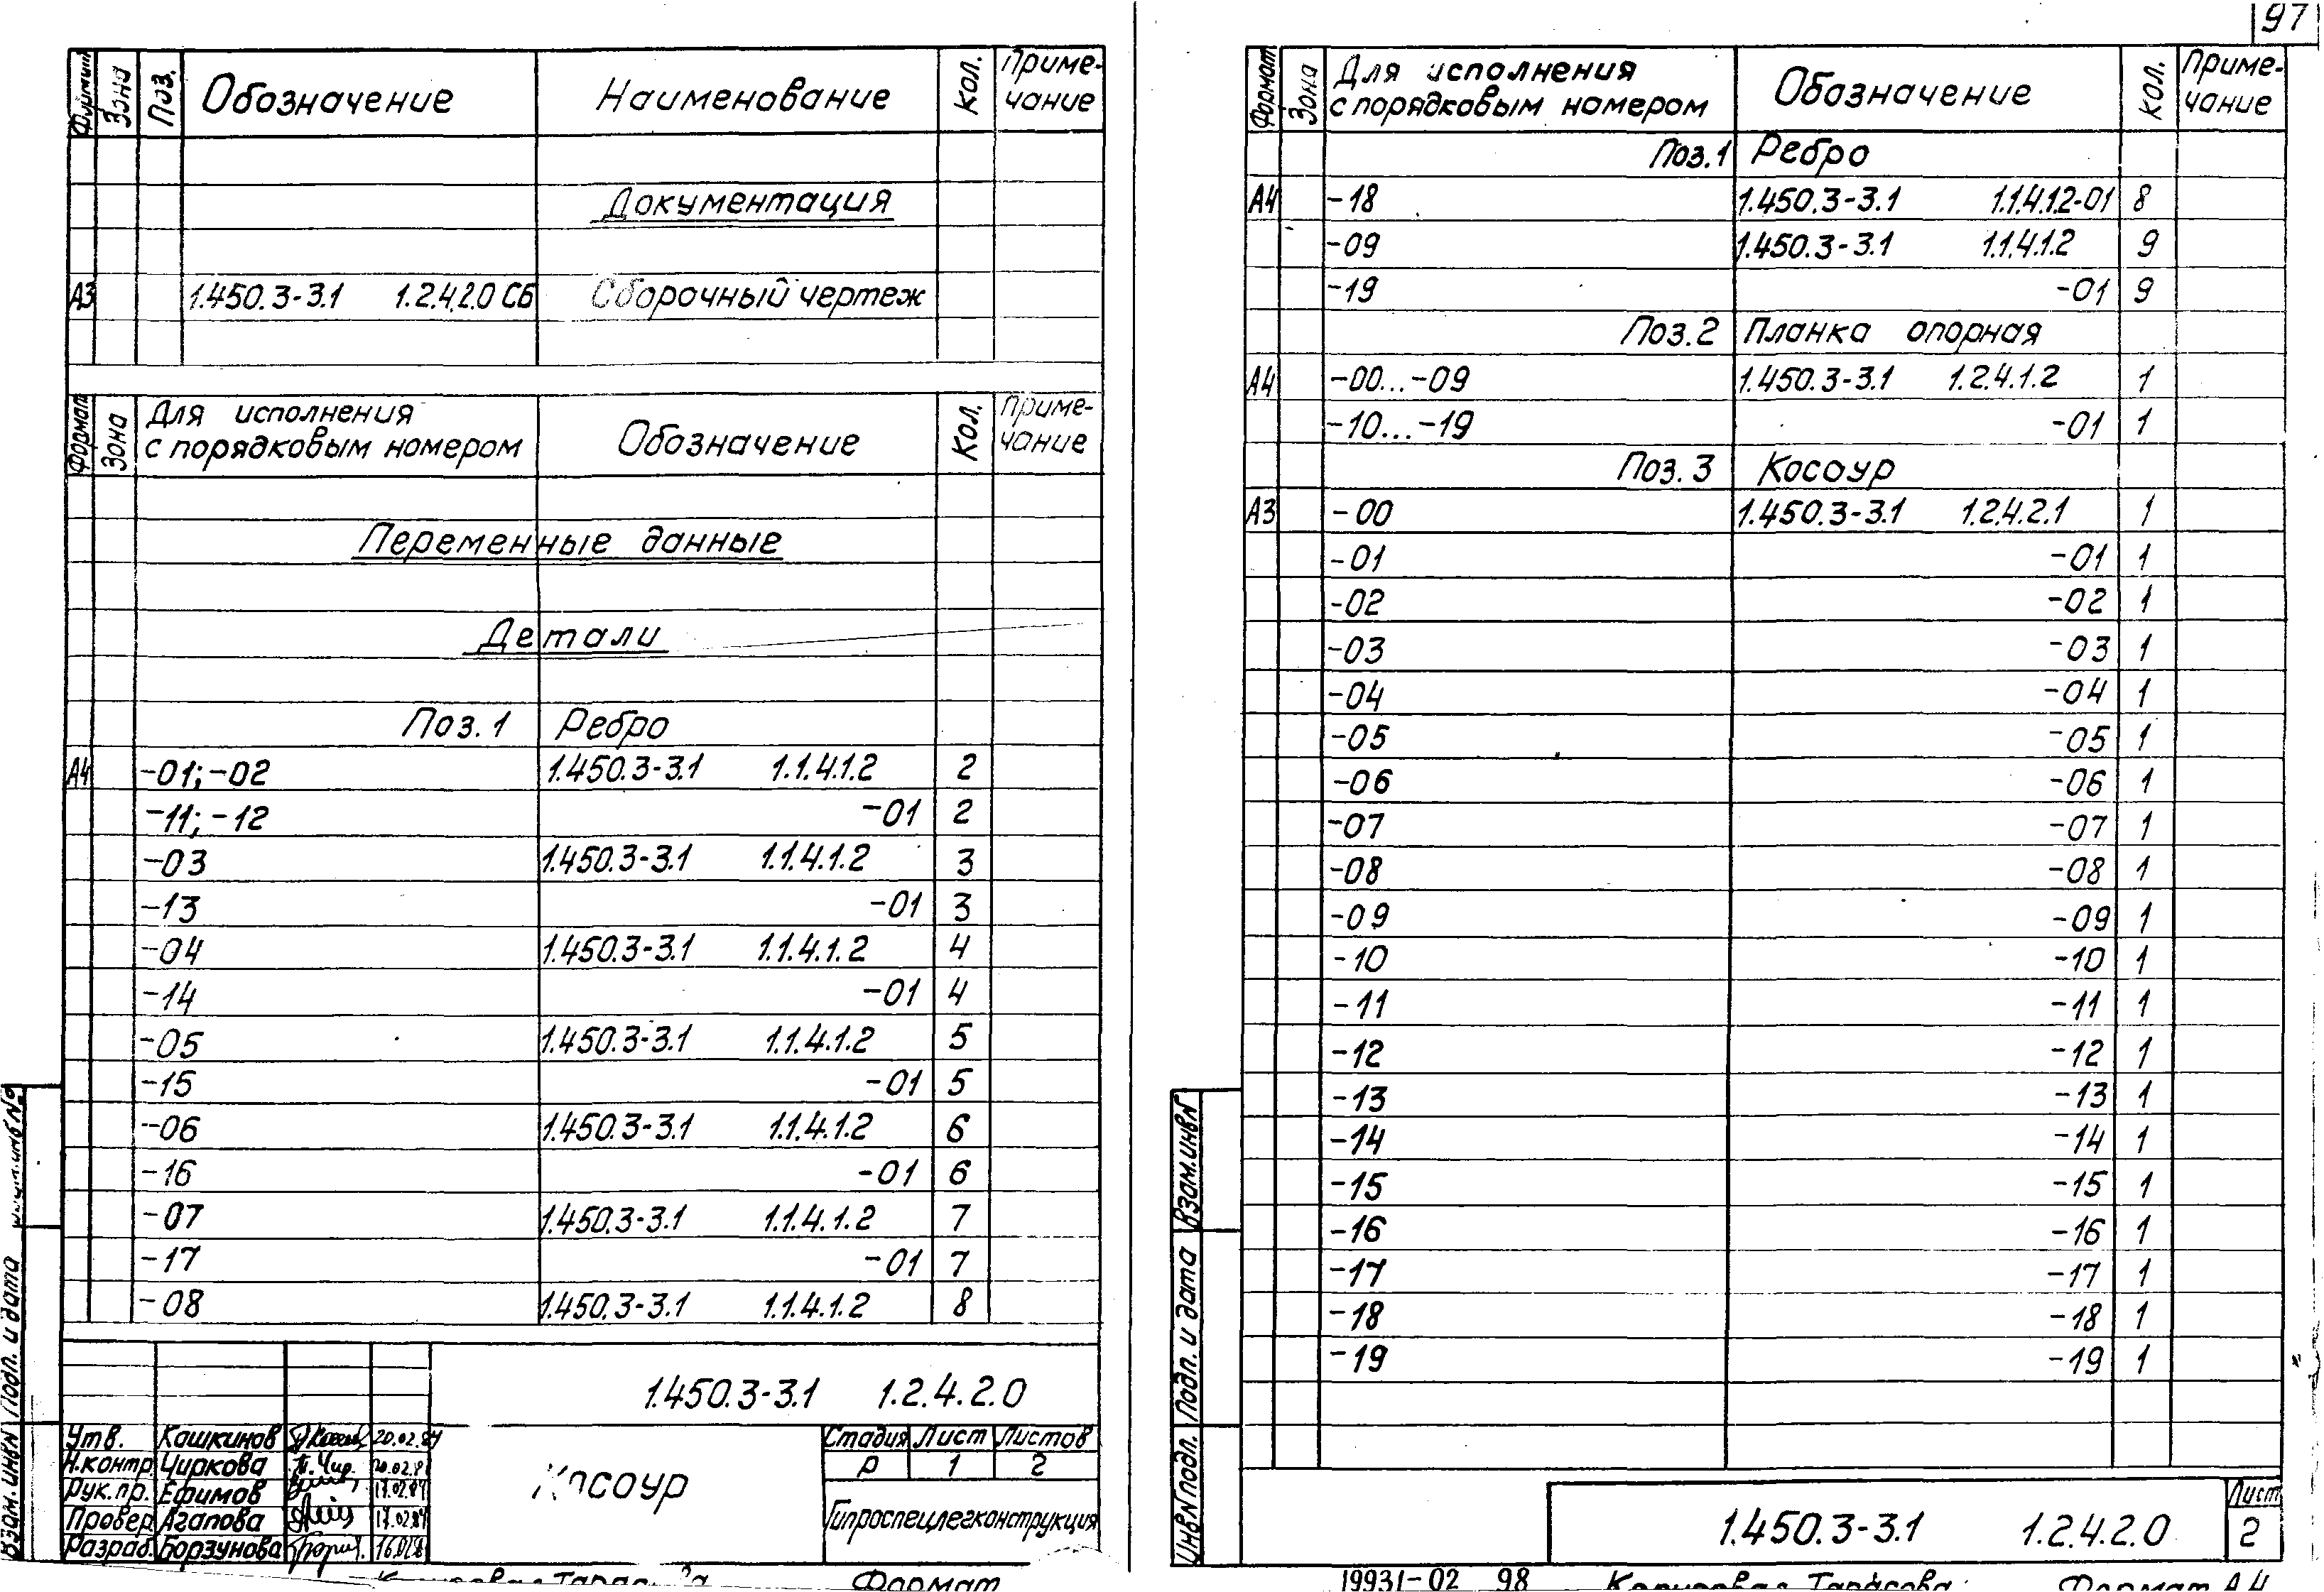 97
Формат Зона Поз. Обозначение Наименование Кол. Приме-
чание
Документация
А3 1.450.3-3.1 1.2.4.2.0 СБ Сборочный чертеж
Формат Зона Для исполнения
с порядковым номером Обозначение Кол. Приме-
чание
Переменные данные
Детали
Поз. 1 Ребро
А4 -01; -02 1.450.3-3.1 1.1.4.1.2 2
-11; -12 -01 2
-03 1.450.3-3.1 1.1.4.1.2 3
-13 -01 3
-04 1.450.3-3.1 1.1.4.1.2 4
-14 -01 4
-05 1.450.3-3.1 1.1.4.1.2 5
-15 -01 5
-06 1.450.3-3.1 1.1.4.1.2 6
-16 -01 6
-07 1.450.3-3.1 1.1.4.1.2 7
-17 -01 7
-08 1.450.3-3.1 1.1.4.1.2 8
1.450.3-3.1 1.2.4.2.0
Утв. Кашкинов 20.02.84
Н.контр. Чиркова
Рук.пр. Ефимов 17.02.84
Провер. Агапова 17.02.84
Разраб. Борзунова
Косоур
Стадия Лист Листов
Р 1 2
Гипроспецлегконструкция
Взам. инв N Подп. и дата
Формат
Формат Зона Для исполнения
с порядковым номером Обозначение Кол. Приме-
чание
Поз. 1 Ребро
А4 -18 1.450.3-3.1 1.1.4.1.2-01 8
-09 1.450.3-3.1 1.1.4.1.2 9
-19 -01 9
Поз. 2 Планка опорная
А4 -00...-09 1.450.3-3.1 1.2.4.1.2 1
-10...-19 -01 1
Поз. 3 Косоур
А3 -00 1.450.3-3.1 1.2.4.2.1 1
-01 -01 1
-02 -02 1
-03 -03 1
-04 -04 1
-05 -05 1
-06 -06 1
-07 -07 1
-08 -08 1
-09 -09 1
-10 -10 1
-11 -11 1
-12 -12 1
-13 -13 1
-14 -14 1
-15 -15 1
-16 -16 1
-17 -17 1
-18 -18 1
-19 -19 1
Инв N подл. Подп. и дата Взам. инв N
1.450.3-3.1 1.2.4.2.0 Лист
2
19931-02 98 Копировал Тарасова Формат А4